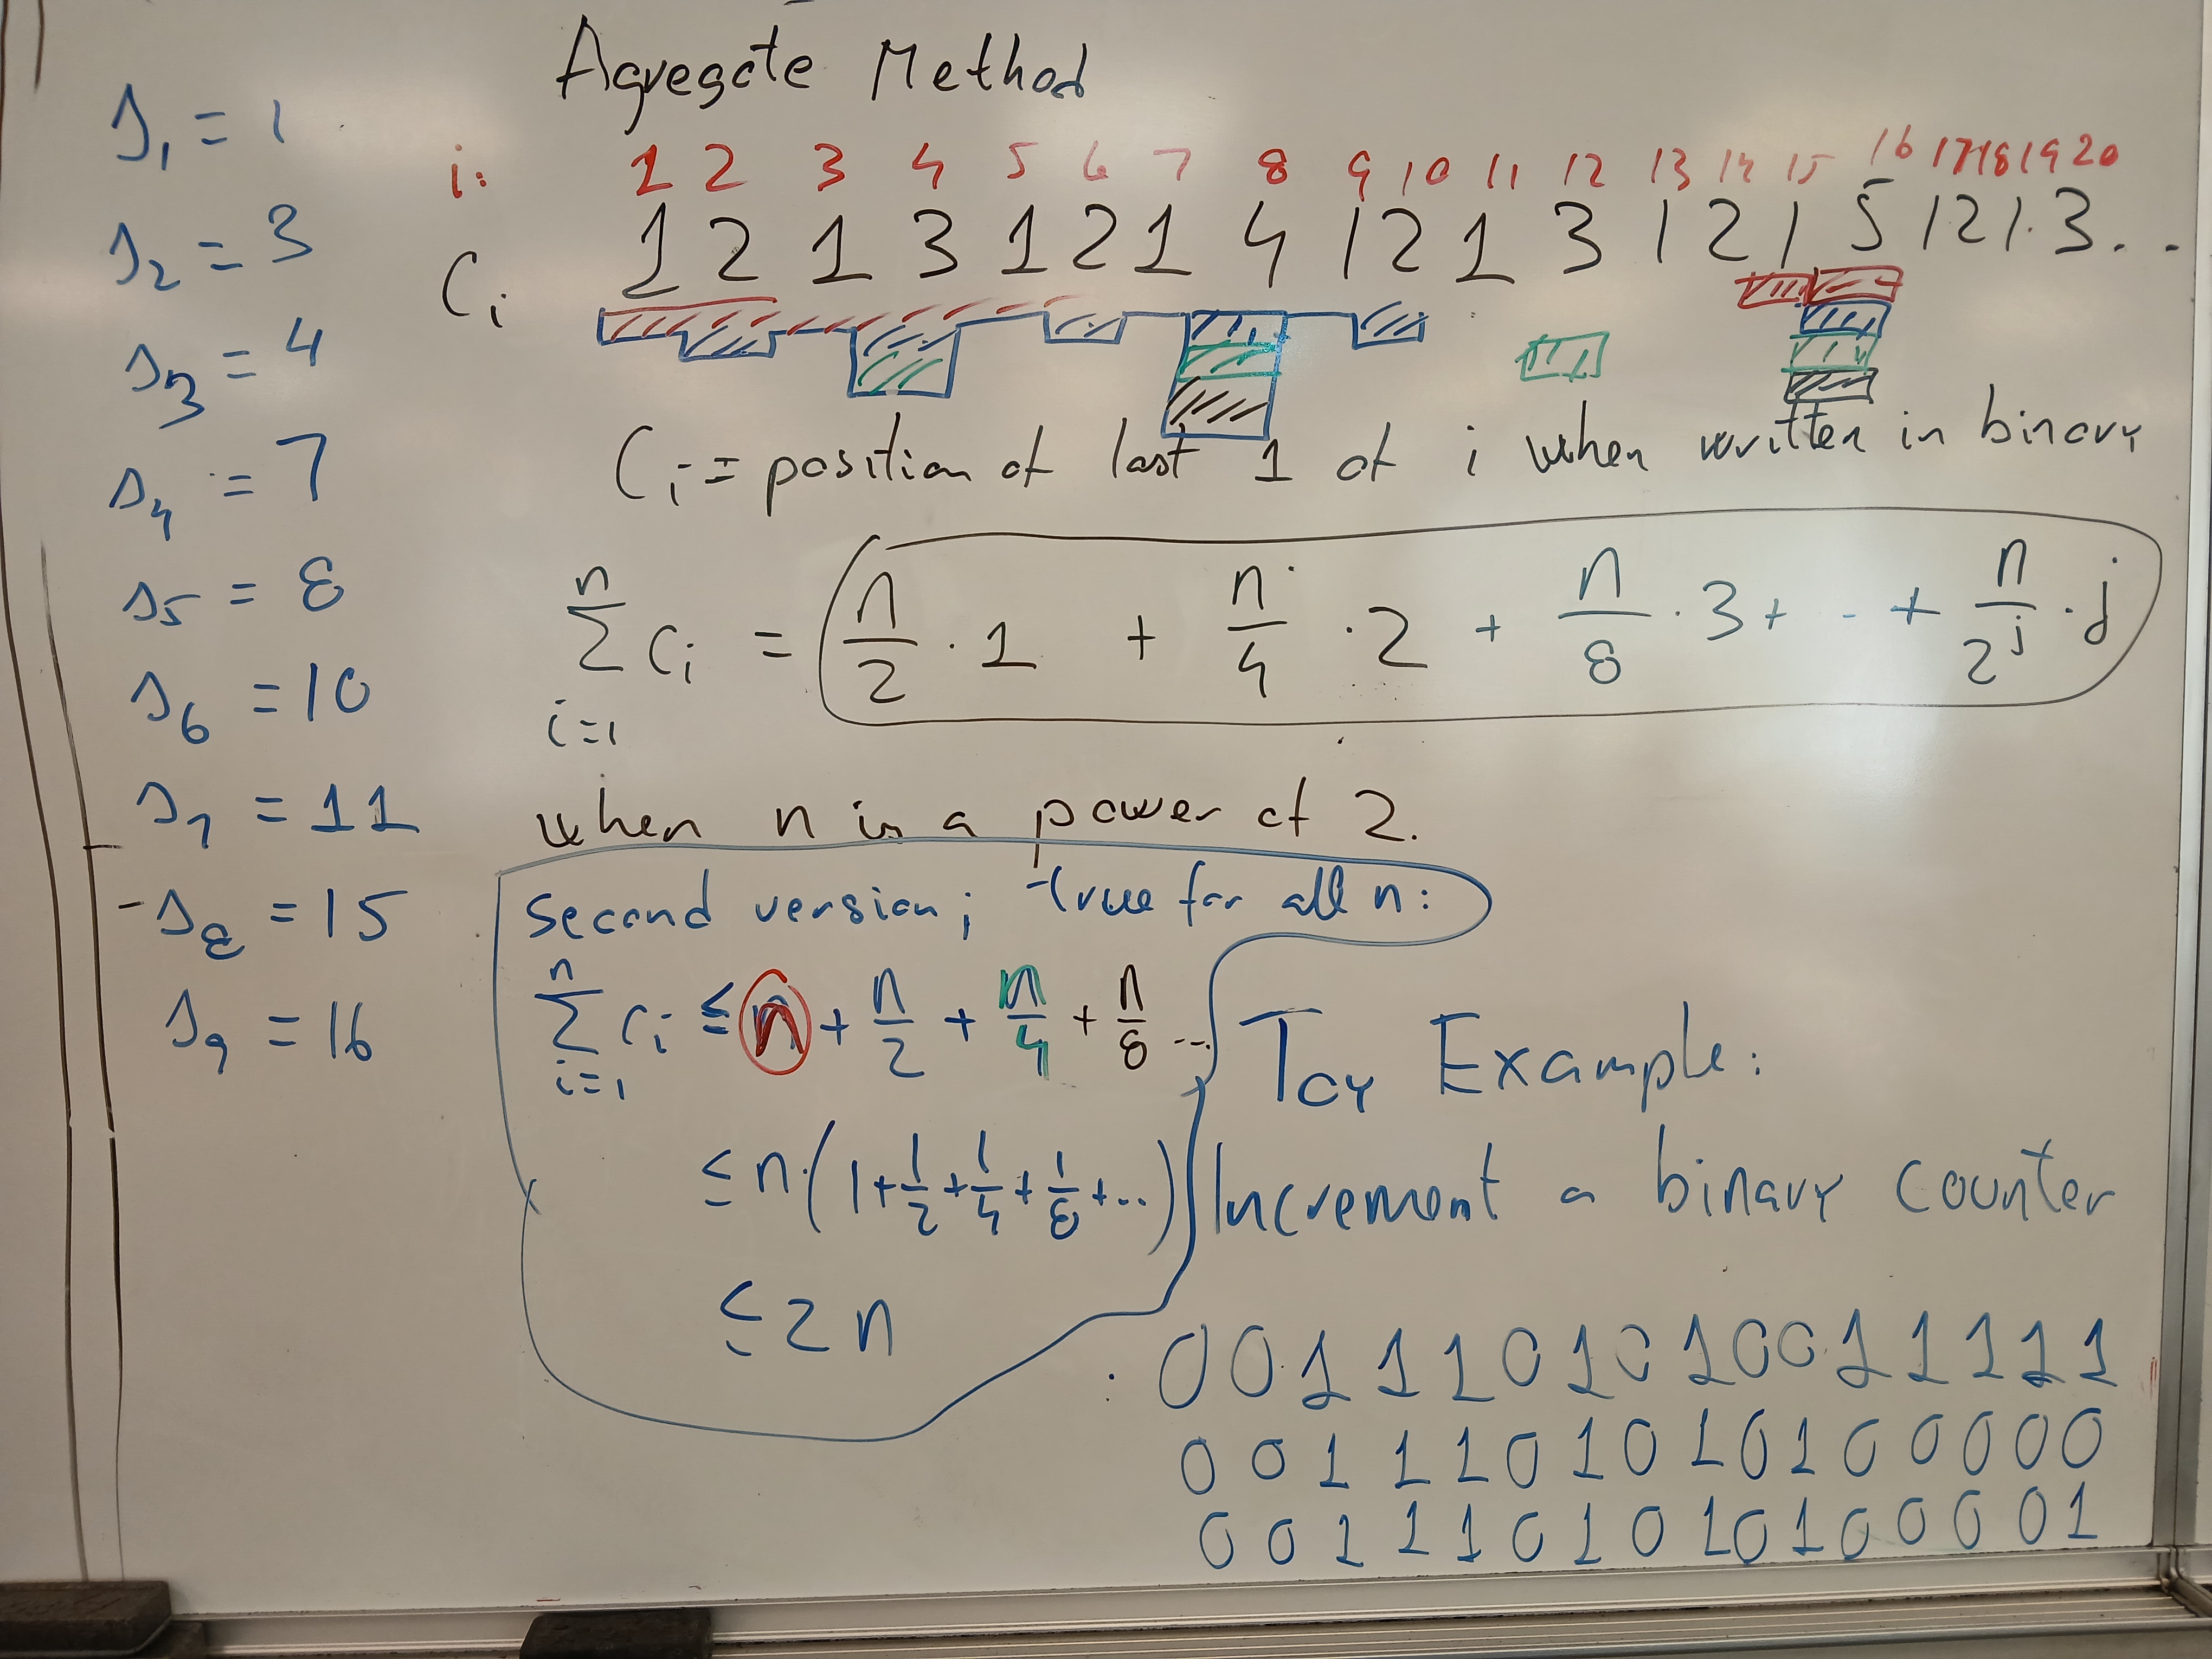 Agregate Method
s₁ = 1
s₂ = 3
s₃ = 4
s₄ = 7
s₅ = 8
s₆ = 10
s₇ = 11
s₈ = 15
s₉ = 16
i: 1 2 3 4 5 6 7 8 9 10 11 12 13 14 15 16 17 18 19 20
Cᵢ 1 2 1 3 1 2 1 4 1 2 1 3 1 2 1 5 1 2 1 3 . .
Cᵢ = position of last 1 of i when written in binary
∑ᵢ₌₁ⁿ Cᵢ = n/2 · 1 + n/4 · 2 + n/8 · 3 + ·· + n/2ʲ · j
when n is a power of 2.
Second version; true for all n:
∑ᵢ₌₁ⁿ Cᵢ ≤ n + n/2 + n/4 + n/8 ...
≤ n·(1 + 1/2 + 1/4 + 1/8 + ...)
≤ 2n
Toy Example:
Increment a binary counter
0 0 1 1 1 0 1 0 1 0 0 1 1 1 1 1
0 0 1 1 1 0 1 0 1 0 1 0 0 0 0 0
0 0 1 1 1 0 1 0 1 0 1 0 0 0 0 1